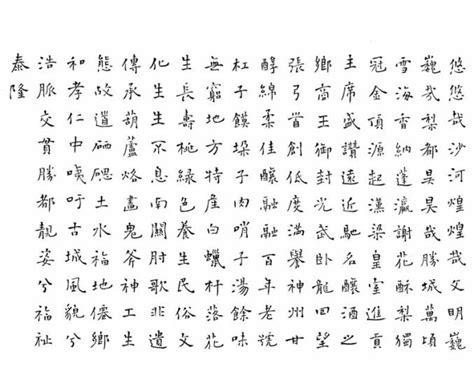 悠悠哉沙河煌煌哉文明巍
巍哉梨都昊煌哉勝城萬頃
雪海香納蓬瀛謝花酥梨獨
冠金頂源起漾梁皇室進貢
主席盛讚遠近馳名釀酒之
鄉高王御封光武臥龍四望
張弓首創低度滿譽神州甘
醇綿柔佳釀融融百年老號
杠子饃垛子肉哨子湯餘味
無窮地方特產白蠟杆落花
生長壽桃綠色養生民俗文
化生息肘歌非遺
傳承葫蘆烙畫鬼斧神工生
態故道硒土水福地僊鄉
和孝仁中喚吁古城風貌兮
浩脈交貫勝都靚姿兮福祉
泰隆